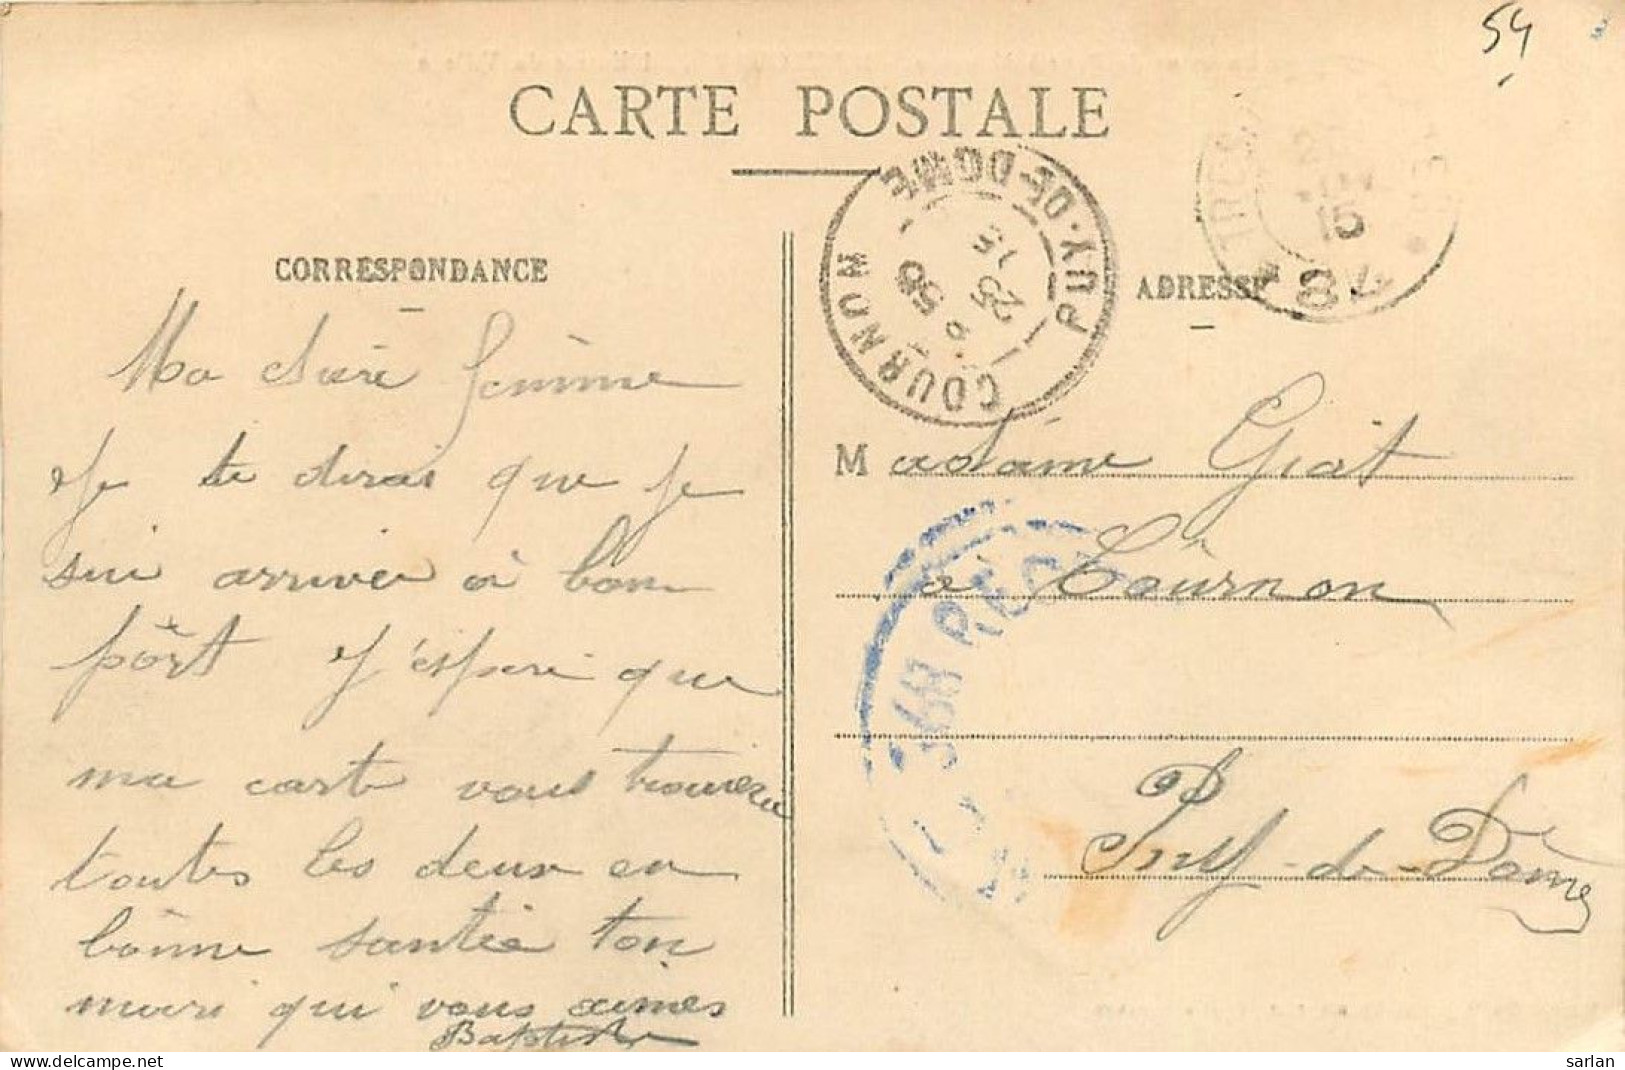 54
CARTE POSTALE
CORRESPONDANCE
Ma chère femme
Je te dirai que je
sui arrivee à bon
pôrt J'espere que
ma carte vous trouveza
toutes les deux en
bônne santée ton
mari qui vous aimes
Baptiste
COURNON
PUY-DE-DOME
25
15
TRÉSOR
15
84
ADRESSE
Madame Giat
à Côurnon
Puy-de-Dôme
sarlan